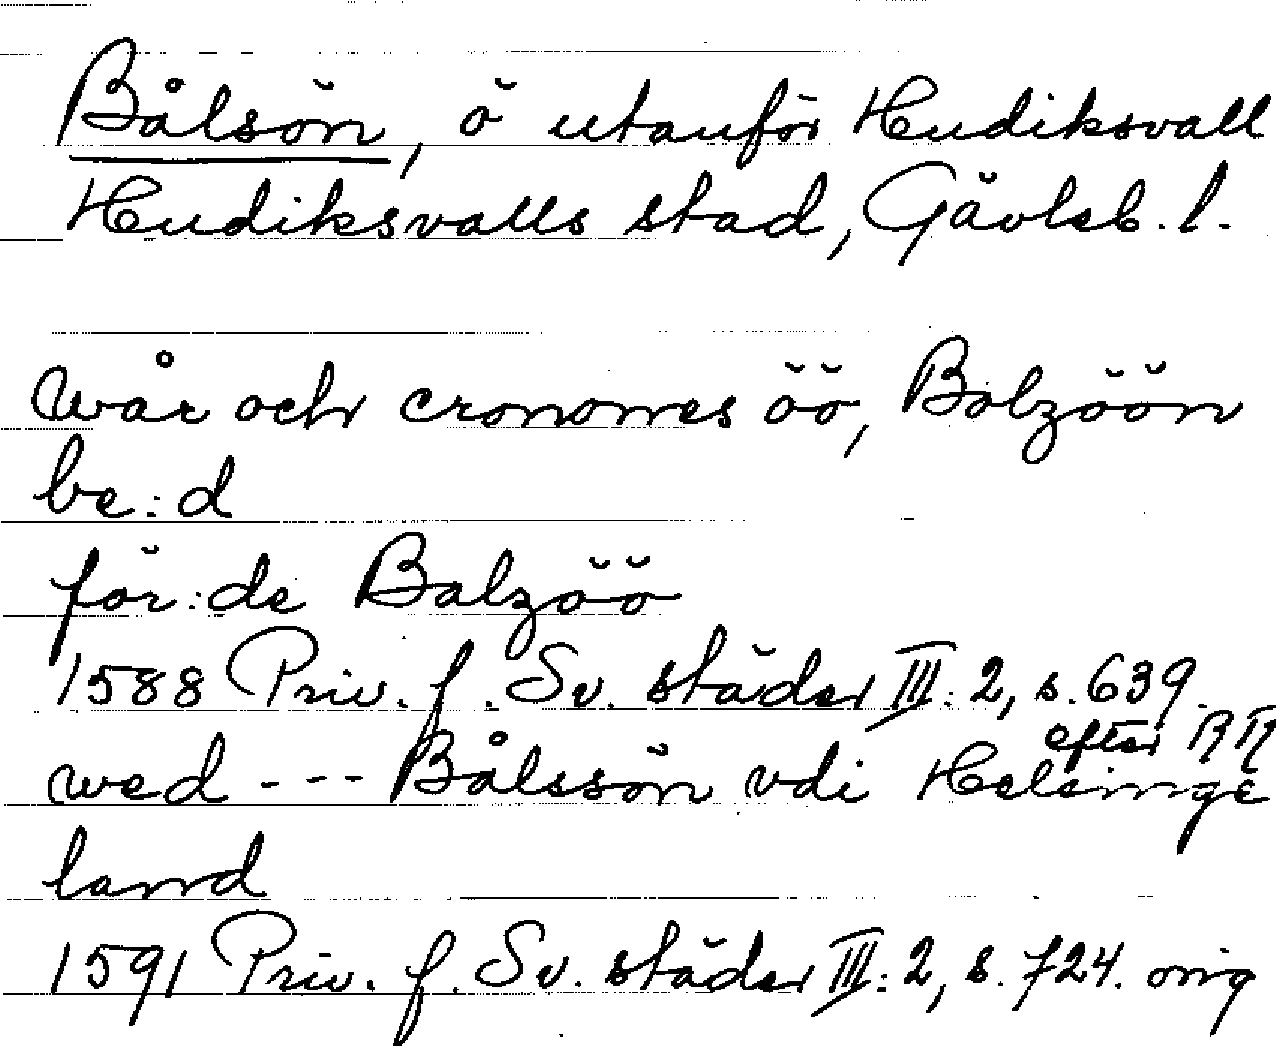 Bålsön, ö utanför Hudiksvall
Hudiksvalls stad, Gävleb. l.
wår och cronones öö, Bolzöön
be:d
för:de Balzöö
1588 Priv. f. Sv. städer III:2, s. 639.
efter RR
wed --- Bålssön vdi Helsinge
land
1591 Priv. f. Sv. städer III:2, s. 724. orig